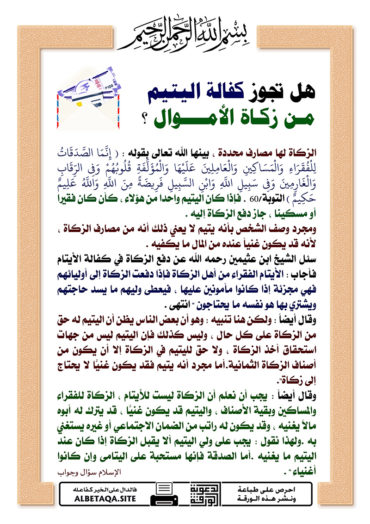 بسم الله الرحمن الرحيم
هل تجوز كفالة اليتيم
من زكاة الأمــوال ؟
الزكاة لها مصارف محددة ، بينها الله تعالى بقوله : ( إِنَّمَا الصَّدَقَاتُ
لِلْفُقَرَاءِ وَالْمَسَاكِينِ وَالْعَامِلِينَ عَلَيْهَا وَالْمُؤَلَّفَةِ قُلُوبُهُمْ وَفِي الرِّقَابِ
وَالْغَارِمِينَ وَفِي سَبِيلِ اللَّهِ وَابْنِ السَّبِيلِ فَرِيضَةً مِنَ اللَّهِ وَاللَّهُ عَلِيمٌ
حَكِيمٌ ) التوبة/60 . فإذا كان اليتيم واحدا من هؤلاء ، كأن كان فقيرا
أو مسكينا ، جاز دفع الزكاة إليه .
ومجرد وصف الشخص بأنه يتيم لا يعني ذلك أنه من مصارف الزكاة ،
لأنه قد يكون غنيا عنده من المال ما يكفيه .
سئل الشيخ ابن عثيمين رحمه الله عن دفع الزكاة في كفالة الأيتام
فأجاب : الأيتام الفقراء من أهل الزكاة فإذا دفعت الزكاة إلى أوليائهم
فهي مجزئة إذا كانوا مأمونين عليها ، فيعطى وليهم ما يسد حاجتهم
ويشتري بها هو نفسه ما يحتاجون - انتهى .
وقال أيضا : ولكن هنا تنبيه : وهو أن بعض الناس يظن أن اليتيم له حق
من الزكاة على كل حال ، وليس كذلك فإن اليتيم ليس من جهات
استحقاق أخذ الزكاة ، ولا حق لليتيم في الزكاة إلا أن يكون من
أصناف الزكاة الثمانية.أما مجرد أنه يتيم فقد يكون غنيًا لا يحتاج
إلى زكاة".
وقال أيضا : يجب أن نعلم أن الزكاة ليست للأيتام ، الزكاة للفقراء
والمساكين وبقية الأصناف ، واليتيم قد يكون غنيًا ، قد يترك له أبوه
مالا يغنيه ، وقد يكون له راتب من الضمان الاجتماعي أو غيره يستغني
به .ولهذا نقول : يجب على ولي اليتيم ألا يقبل الزكاة إذا كان عند
اليتيم ما يغنيه .أما الصدقة فإنها مستحبة على اليتامى وإن كانوا
أغنياء" .
الإسلام سؤال وجواب
احرص على طباعة
ونشر هذه الورقة
الورقة
فالدال على الخير كفاعله
ALBETAQA.SITE